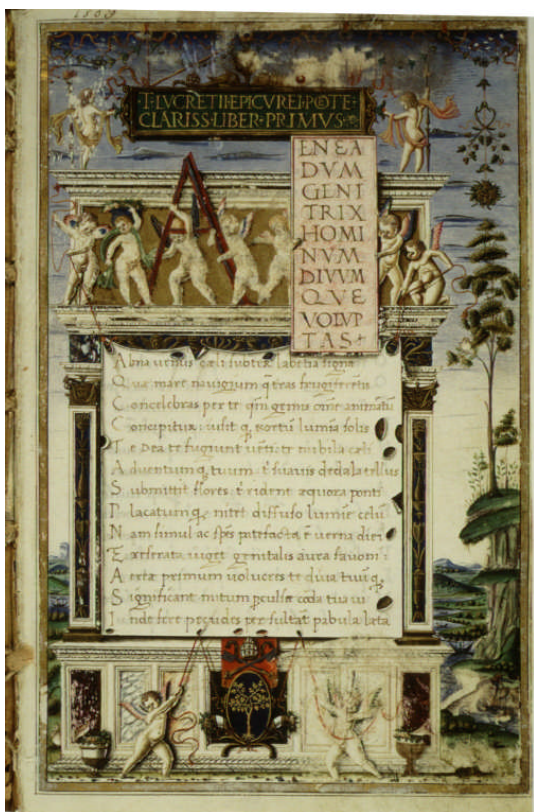 1889
T·LVCRETII·EPICVREI·POTE
CLARISS·LIBER·PRIMVS
A
ENEA
DVM
GENI
TRIX
HOMI
NVM
DIVVM
QVE
VOLVP
TAS
Alma uenus cæli subter labētia signa
Quæ mare nauigerum
Concelebras per te qm̄ genus om̄e animātū
Concipitur uisit q; exortū lumīa solis
Te Dea te fugiunt uēti te nubila cæli
Aduentumq; tuum t̄ suauis dedala tellus
Submittit flores t̄ rident æquora ponti
Placatumq; nitet diffuso lumīe celū
Nam simul ac sp̄es patefacta ē uerna diei
Et reserata uiget genitalis aura fauoni
Aeriæ primum uolucres te diua tuūq;
Significant initum perculsæ corda tua ui
Inde feræ pecudes persultāt pabula læta